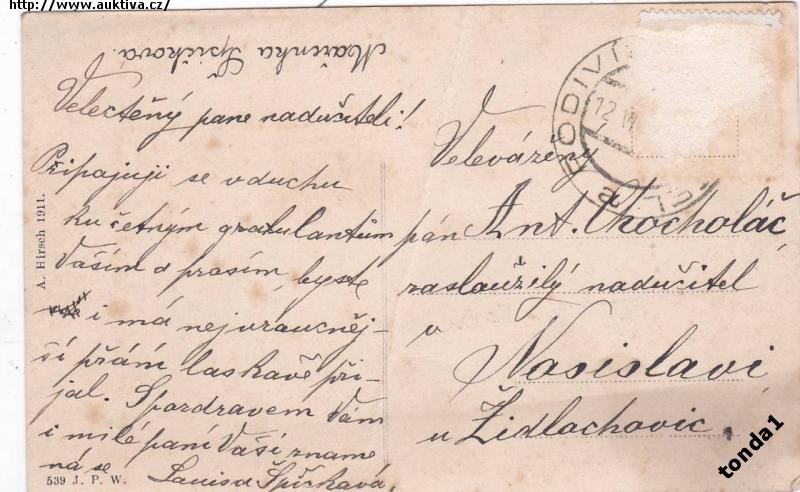 http://www.auktiva.cz/
Mařenka Špičková.
Velectěný pane nadučiteli!
Připojuji se v duchu
ku četným gratulantům
Vaším a prosím, byste
i má nejvroucněj-
ší přání laskavě při-
jal. S pozdravem Vám
i milé paní Vaší zname
ná se
Louisa Špičková
A. Hirsch 1911.
539 J. P. W.
HODIVÍ
12. VI
Velevážený
pán Ant. Chocholáč,
zasloužilý nadučitel
v
Nosislavi
u Židlochovic.
tonda1